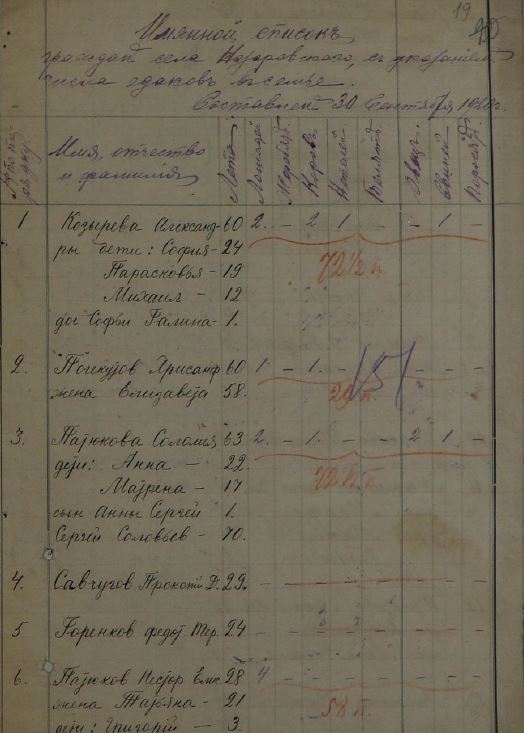 19
Имянной списокъ
граждан села Назаровского, съ указаніем
числа едаковъ въ семье.
Составлен 30 Сентября 1920 г.
Имя, отчество и фамилия Лета. Лошадей Жеребят. Коровъ Нетелей Телятъ. Овецъ. Свиней Поросят.
1 Козырева Александ- 60 2. - 2 1 - - 1 -
ры дети: София - 24
72 1/2 п.
Парасковья - 19
Михаил - 12
доч Софьи Галина - 1.
2. Хрисанф 60 1 - 1. - - - - -
жена Елизавета 58.
29 п.
3. Патюкова Соломия 63 2. - 1. - - 2 1. -
дети: Анна - 22.
Маврена - 17
72 1/2 п.
сын Анны Сергей 1.
Сергей Соловьев - 70.
4. Савчугов Прокопий Д. 29.
5 Горенков Федот Тер. 24
6. Патюков Нестор Емл. 28 4
жена Татьяна - 21
58 п.
дети: Григорий - 3.